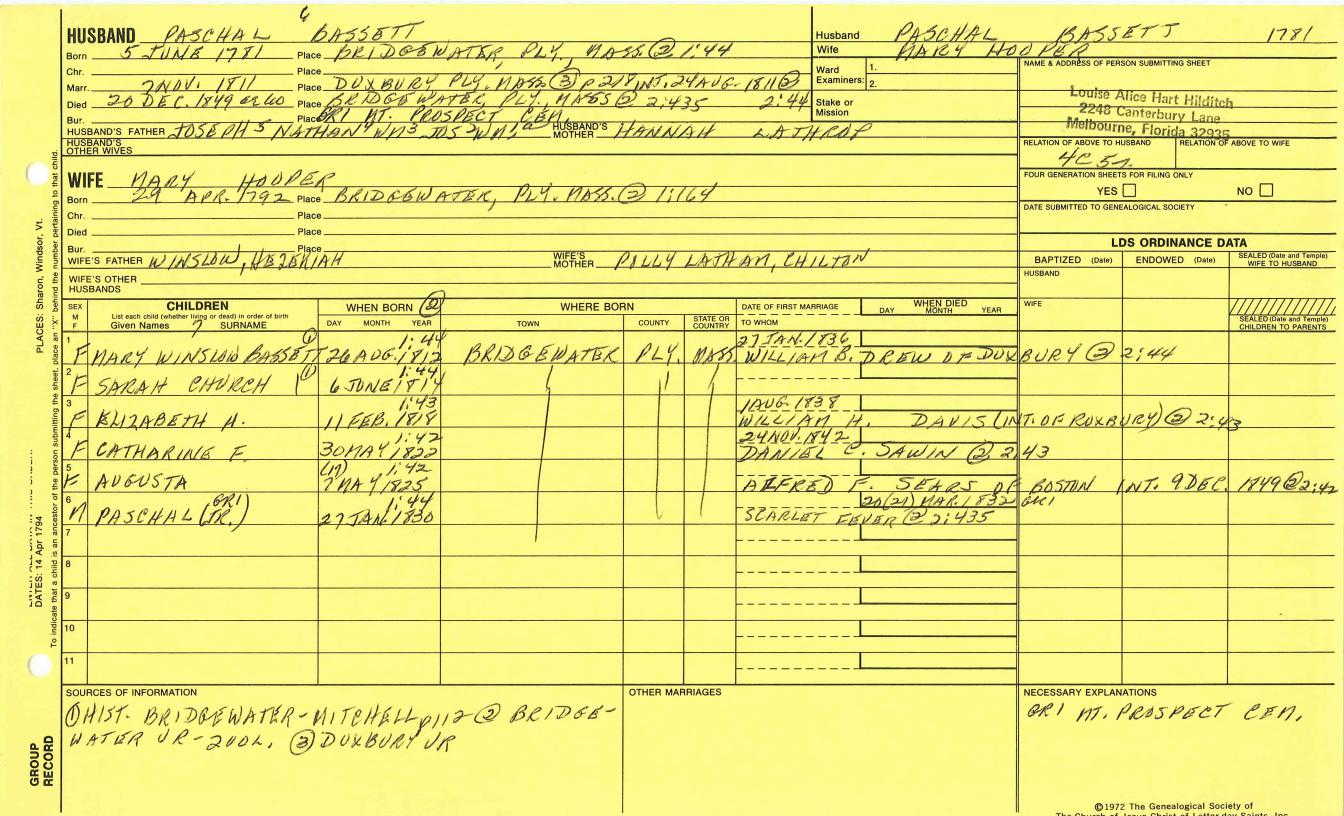 6
HUSBAND PASCHAL BASSETT
Born 5 JUNE 1781 Place BRIDGEWATER, PLY, MASS ② 1:44
Chr. Place
Marr. 2 NOV. 1811 Place DUXBURY PLY. MASS. ③ p218 INT. 24 AUG. 1811 ②
Died 20 DEC. 1849 or 60 Place BRIDGEWATER, PLY, MASS ② 2:435 2:44
Bur. Place GR1 MT. PROSPECT CEM.
HUSBAND'S FATHER JOSEPH 5 NATHAN 4 WM 3 JOS 2 WM 1 HUSBAND'S MOTHER HANNAH LATHROP
HUSBAND'S OTHER WIVES
Husband PASCHAL BASSETT 1781
Wife MARY HOOPER
Ward Examiners: 1. 2.
Stake or Mission
NAME & ADDRESS OF PERSON SUBMITTING SHEET
Louise Alice Hart Hilditch
2248 Canterbury Lane
Melbourne, Florida 32935
RELATION OF ABOVE TO HUSBAND RELATION OF ABOVE TO WIFE
4C 5r
FOUR GENERATION SHEETS FOR FILING ONLY
YES NO
DATE SUBMITTED TO GENEALOGICAL SOCIETY
WIFE MARY HOOPER
Born 29 APR. 1792 Place BRIDGEWATER, PLY. MASS. ② 1:164
Chr. Place
Died Place
Bur. Place
WIFE'S FATHER WINSLOW, HEZEKIAH WIFE'S MOTHER POLLY LATHAM, CHILTON
WIFE'S OTHER HUSBANDS
LDS ORDINANCE DATA
BAPTIZED (Date) ENDOWED (Date) SEALED (Date and Temple) WIFE TO HUSBAND
HUSBAND
WIFE
SEALED (Date and Temple) CHILDREN TO PARENTS
SEX M F CHILDREN WHEN BORN ② WHERE BORN DATE OF FIRST MARRIAGE WHEN DIED
List each child (whether living or dead) in order of birth
Given Names 7 SURNAME DAY MONTH YEAR TOWN COUNTY STATE OR COUNTRY TO WHOM DAY MONTH YEAR
1 ① 1:44 27 JAN. 1836
F MARY WINSLOW BASSETT 26 AUG. 1812 BRIDGEWATER PLY. MASS WILLIAM B. DREW OF DUXBURY ② 2:44
2 ① 1:44
F SARAH CHURCH 6 JUNE 1814
3 1:43 1 AUG. 1838
F ELIZABETH A. 11 FEB. 1818 WILLIAM H. DAVIS (INT. OF ROXBURY) ② 2:43
4 1:42 24 NOV. 1842
F CATHARINE F. 30 MAY 1822 DANIEL C. SAWIN ② 2:43
5 (17) 1:42
F AUGUSTA 7 MAY 1825 ALFRED F. SEARS OF BOSTON INT. 9 DEC. 1849 ② 2:42
6 (GR1 1:44 20 (21) MAR. 1832 GR1
M PASCHAL JR.) 27 JAN. 1830 SCARLET FEVER ② 2:435
7
8
9
10
11
SOURCES OF INFORMATION
① HIST. BRIDGEWATER-MITCHELL p112 ② BRIDGE-
WATER VR-2VOL. ③ DUXBURY VR
OTHER MARRIAGES
NECESSARY EXPLANATIONS
GR1 MT. PROSPECT CEM.
©1972 The Genealogical Society of
The Church of Jesus Christ of Latter-day Saints, Inc.
PLACES: Sharon, Windsor, Vt.
DATES: 14 Apr 1794
To indicate that a child is an ancestor of the person submitting the sheet, place an "X" behind the number pertaining to that child.
GROUP RECORD